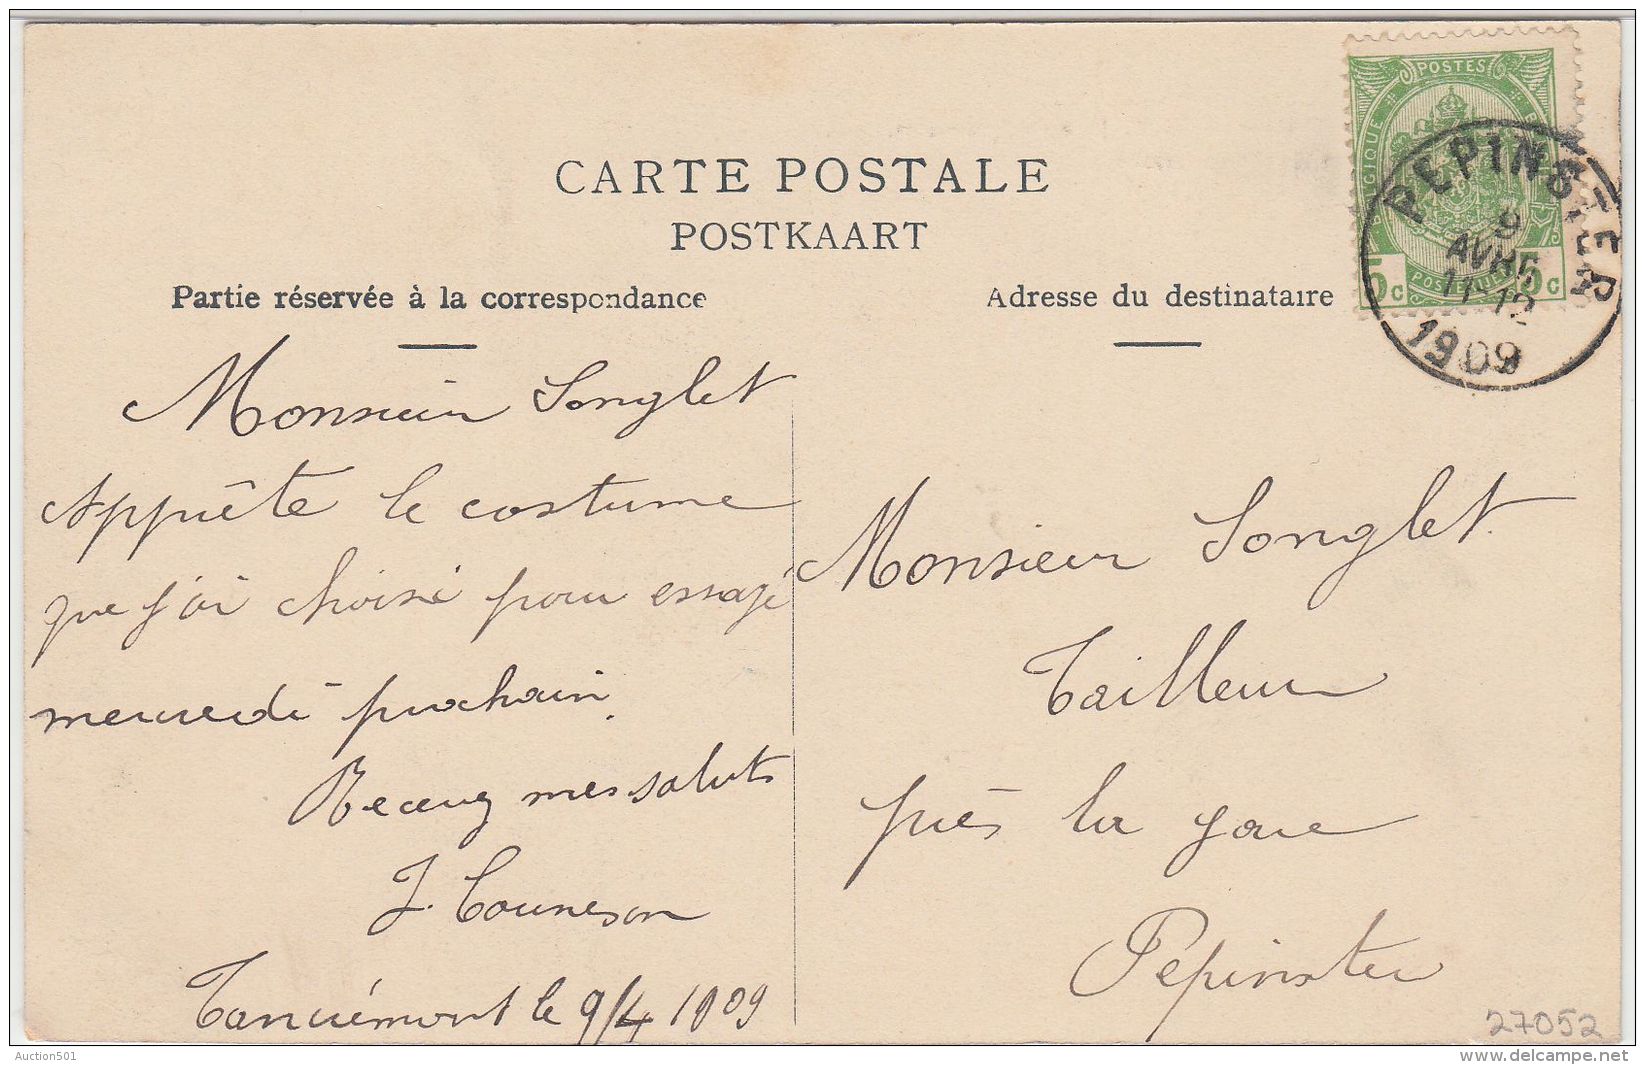 CARTE POSTALE
POSTKAART
Partie réservée à la correspondance
Adresse du destinataire
POSTES
BELGIQUE
5 c
5 c
PEPINSTER
9
AVRI
11-12
1909
Monsieur Songlet
Apprête le costume
que j'ai choisi pour essayé
mercredi prochain.
Recevez mes saluts
J. Couneson
Tancrémont le 9/4 1909
Monsieur Songlet
Tailleur
près la gare
Pepinster
27052
Auction501
www.delcampe.net